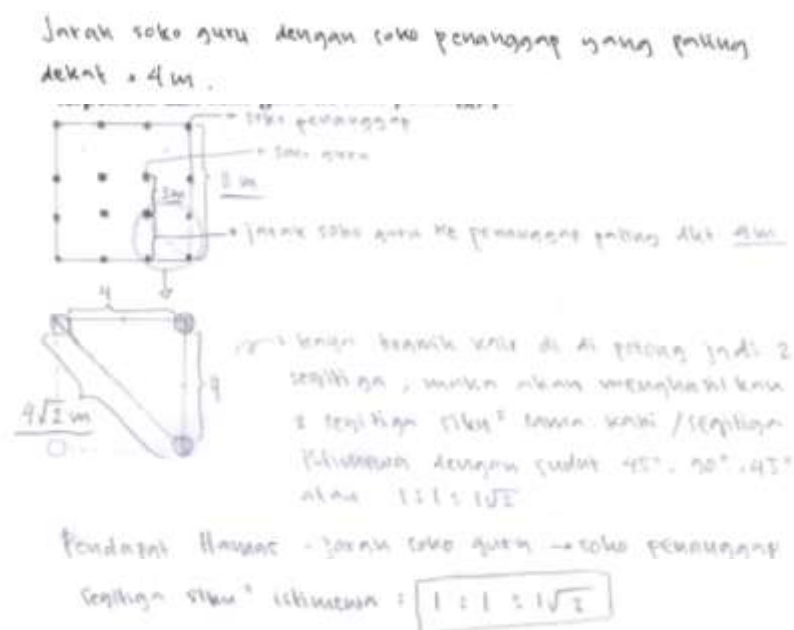 Jarak soko guru dengan soko penanggap yang paling
dekat = 4 m.
soko penanggap
soko guru
3m
8 m
jarak soko guru ke penanggap paling dkt 4m
4
4
4√2 m
di di potong jadi 2
segitiga, maka akan menghasilkan
2 segitiga siku² sama kaki / segitiga
istimewa dengan sudut 45°, 90°, 45°
atau 1 : 1 : 1√2
Pendapat - jarak soko guru → soko penanggap
segitiga siku² istimewa : 1 : 1 : 1√2